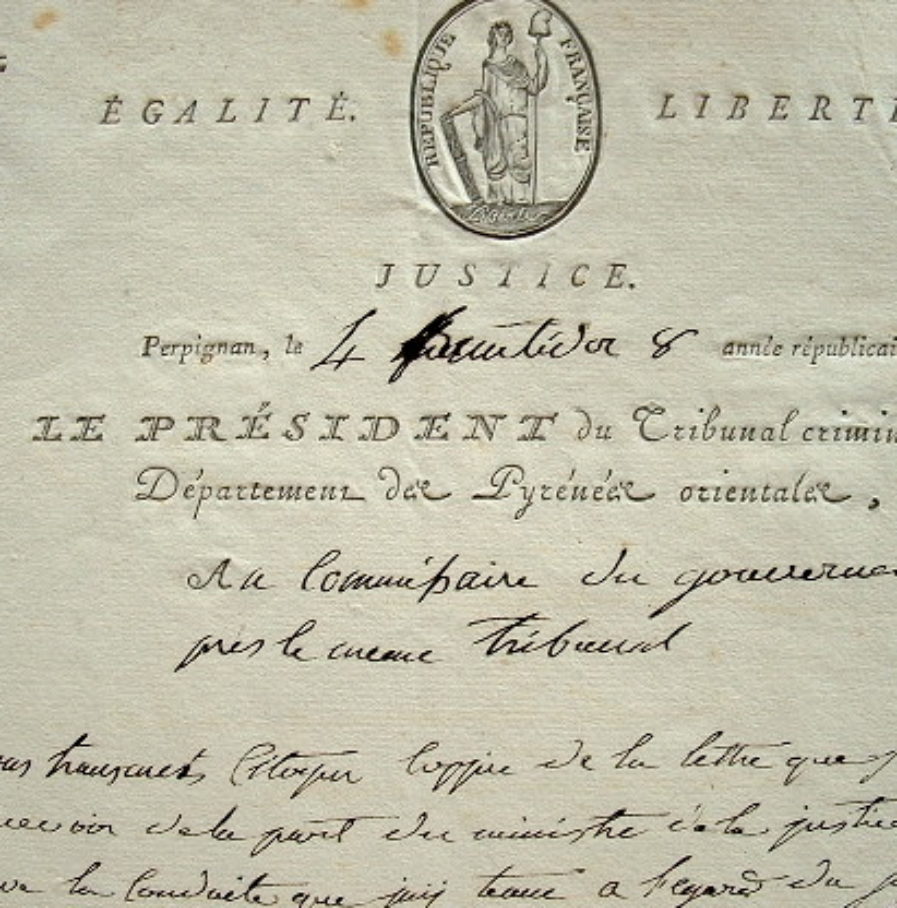 ÉGALITÉ. RÉPUBLIQUE FRANÇAISE LIBERTÉ
Liberté
JUSTICE.
Perpignan, le 4 8 année républicai
LE PRÉSIDENT du Tribunal crimin
Département des Pyrénées orientales,
Au Commissaire du gouvernem
pres le meme tribunal
ous transmets Citoyen Coppie de la lettre que j
recevoir de la part du ministre de la justice
la Conduite que j'ai tenue a l'egard du